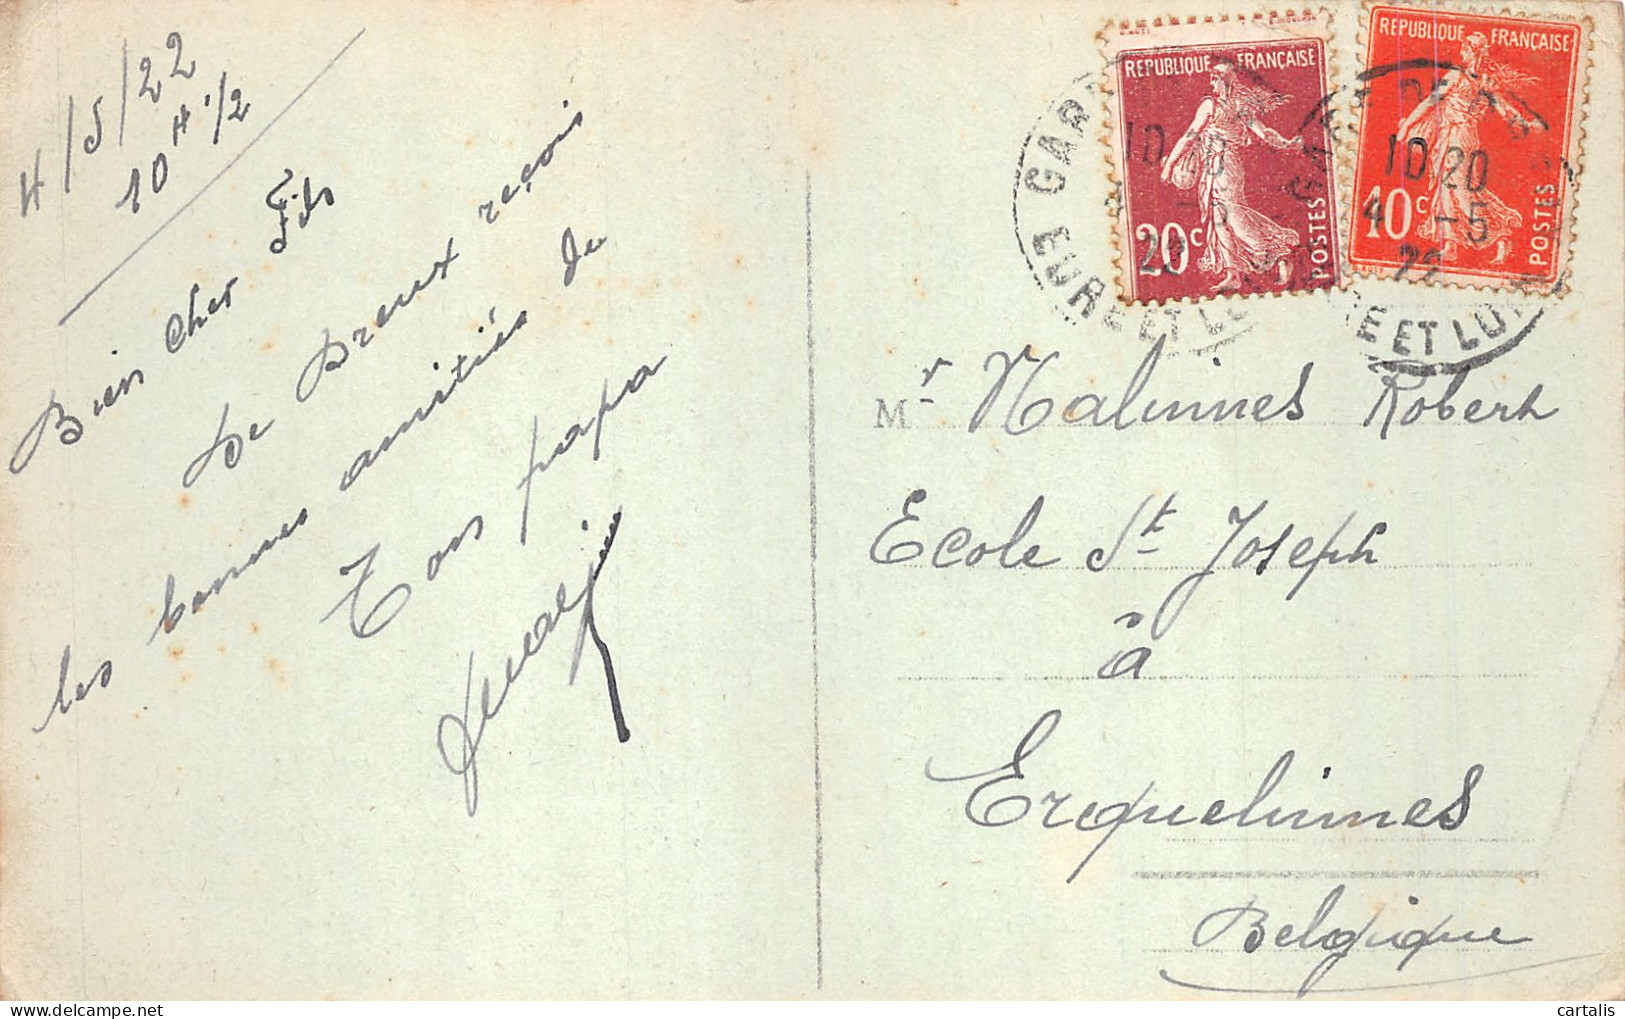 4/5/22
10 H 1/2
Bien cher Fils
De Dreux reçois
les bonnes amitiés de
Ton papa
RÉPUBLIQUE FRANÇAISE
20c
POSTES
RÉPUBLIQUE FRANÇAISE
10c
POSTES
GARE
EURE ET LOIR
GARE DE
10 20
4 -5
22
EURE ET LOIR
Mr Malinnes Robert
Ecole St Joseph
à
Erquelinnes
Belgique
cartalis